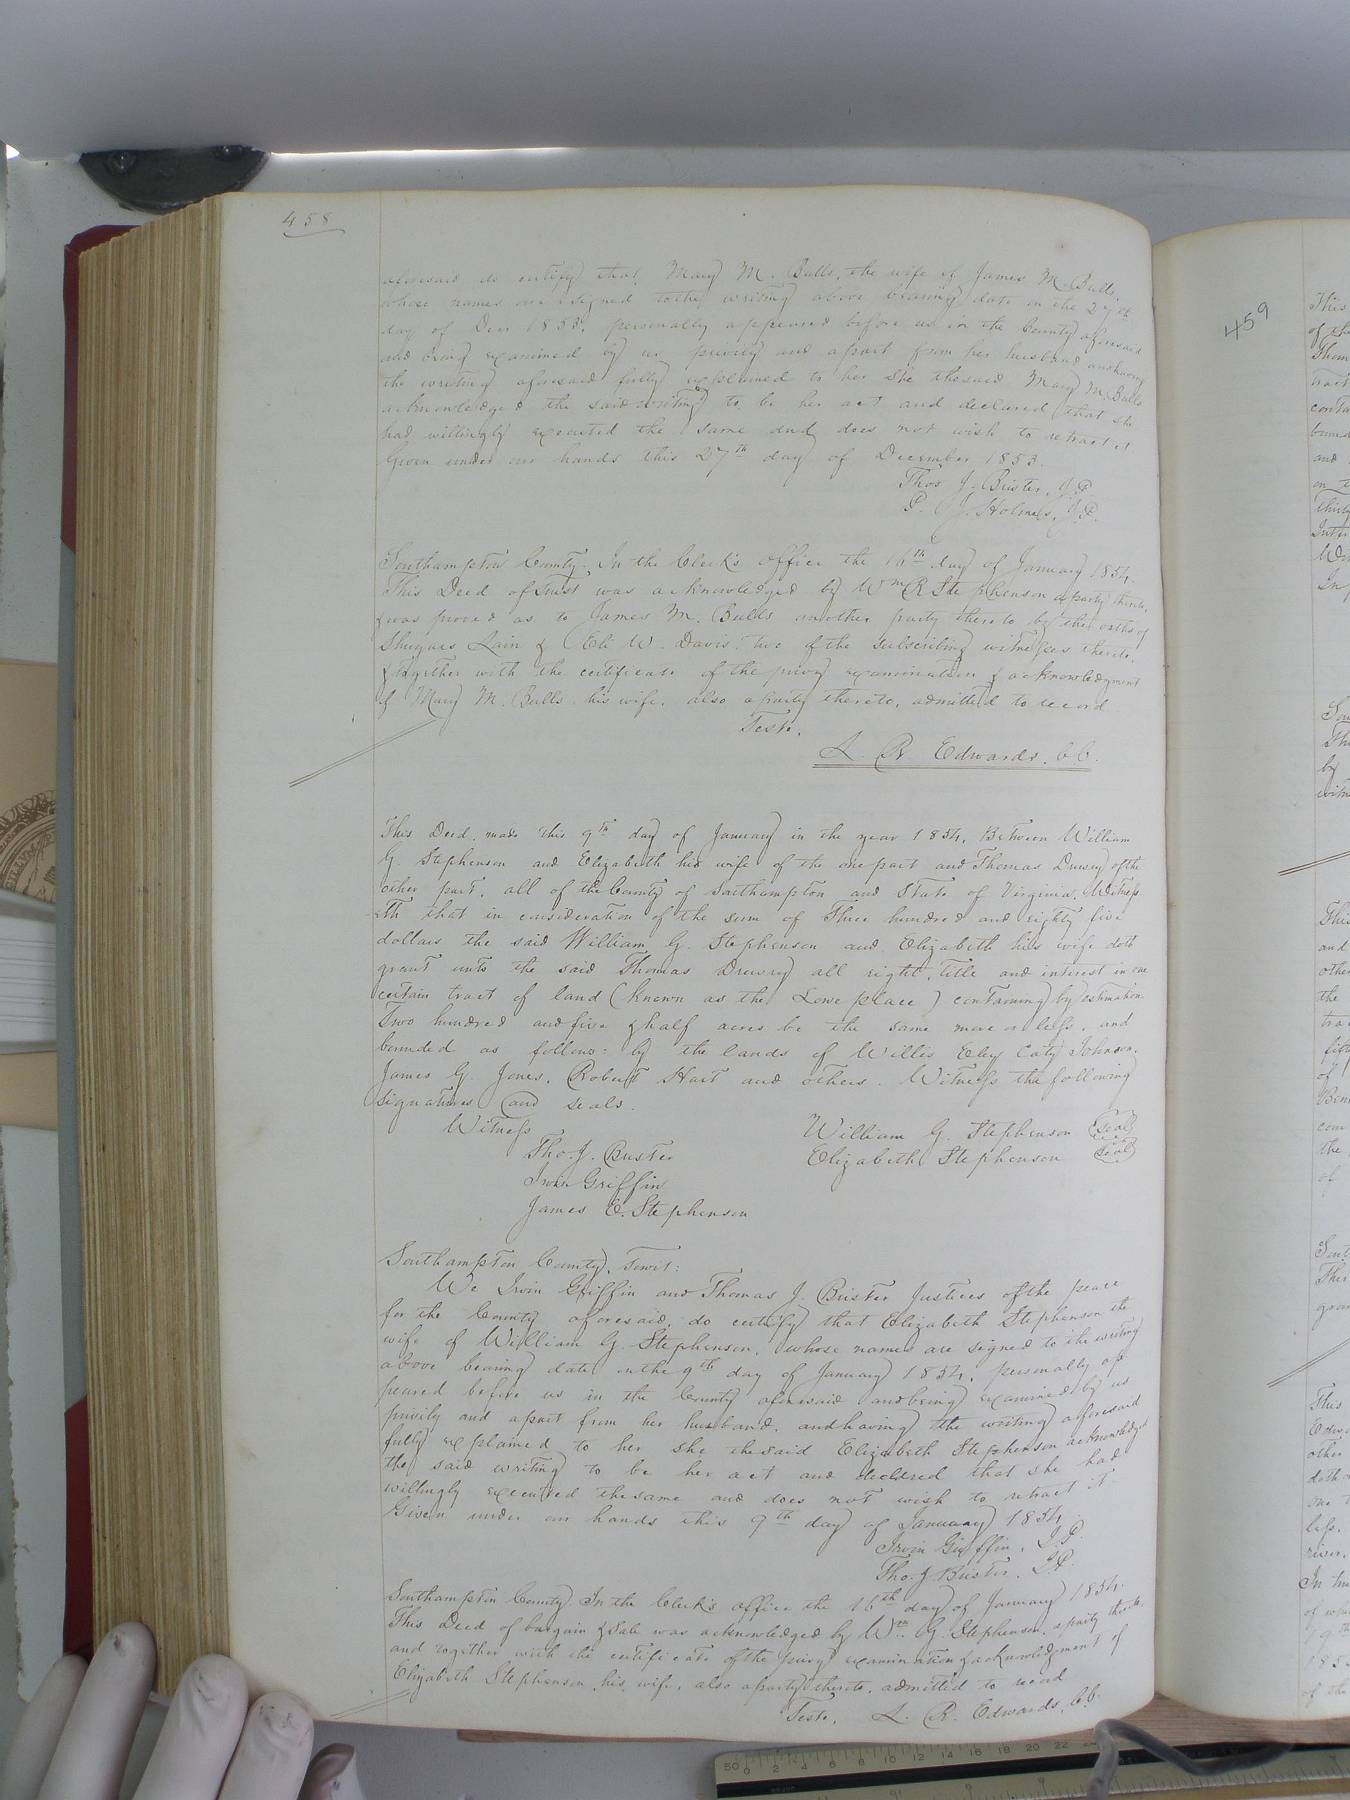 458
aforesaid do certify that, Mary M. Bulls, the wife of James M. Bulls,
whose names are signed to the writing above bearing date on the 27th
day of Decr 1853, personally appeared before us in the County aforesaid
and being examined by us privily and apart from her husband and having
the writing aforesaid fully explained to her she the said Mary M. Bulls
acknowledged the said writing to be her act and declared that she
had willingly executed the same and does not wish to retract it
Given under our hands this 27th day of December 1853.
Thos J. Bister, J.P.
P. J. Holmes, J.P.
Southampton County. In the Clerk's office the 16th day of January 1854.
This Deed of Trust was acknowledged by Wm R Stephenson a party thereto,
& was proved as to James M. Bulls another party thereto by the oaths of
Shugars Lain & Eli W. Davis two of the subscribing witnesses thereto,
& together with the certificate of the privy examination & acknowledgment
of Mary M. Bulls his wife, also a party thereto, admitted to record
Teste,
L. R. Edwards, C.C.
This Deed made this 9th day of January in the year 1854, Between William
G. Stephenson and Elizabeth his wife of the one part and Thomas Drewry of the
other part, all of the County of Southampton and State of Virginia, Witness
eth that in consideration of the sum of Three hundred and eighty five
dollars the said William G. Stephenson and Elizabeth his wife doth
grant unto the said Thomas Drewry all right, title and interest in one
certain tract of land (known as the Lowe place) containing by estimation
Two hundred and five & half acres be the same more or less, and
bounded as follows: by the lands of Willis Eley Caty Johnson,
James G. Jones, Robert Hart and others. Witness the following
signatures and seals.
Witness
William G. Stephenson (Seal)
Tho. J. Buster
Elizabeth Stephenson (Seal)
Irvin Griffin
James E. Stephenson
Southampton County, Towit:
We Irvin Griffin and Thomas J. Bister Justices of the peace
for the County aforesaid, do certify that Elizabeth Stephenson the
wife of William G. Stephenson, whose names are signed to the writing
above bearing date on the 9th day of January 1854, personally ap
peared before us in the County aforesaid and being examined by us
privily and apart from her husband, and having the writing aforesaid
fully explained to her she the said Elizabeth Stephenson acknowledged
the said writing to be her act and declared that she had
willingly executed the same and does not wish to retract it
Given under our hands this 9th day of January 1854
Irvin Griffin, J.P.
Tho. J Buster, J.P.
Southampton County. In the Clerk's office the 16th day of January 1854.
This Deed of bargain & sale was acknowledged by Wm. G. Stephenson, a party thereto,
and together with the certificate of the privy examination & acknowledgment of
Elizabeth Stephenson, his wife, also a party thereto, admitted to record
Teste, L. R. Edwards, C.C.
459